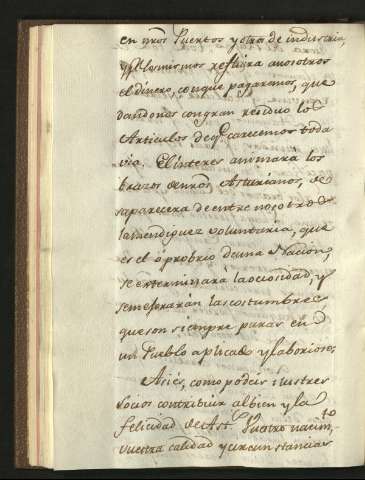 en nros Puertos y otra de industria,
y p.r los mismos refluira a nosotros
el dinero, con que pagaramos, que
dandonos con gran residuo los
Articulos de q.e carecemos toda
via. El interes animara los
brazos de nros Asturianos, de
saparecera de entre nosotros
la mendiguez voluntaria, que
es el oprobrio de una Nacion,
se exterminará la ociosidad, y
se mejorarán las costumbres
que son siempre puras en
un Pueblo aplicado y laborioso.
Asi és, como podeis ilustres
socios contribuir al bien y la
felicidad de Ast. Vuestro nacim.to
vuestra calidad y circunstancias